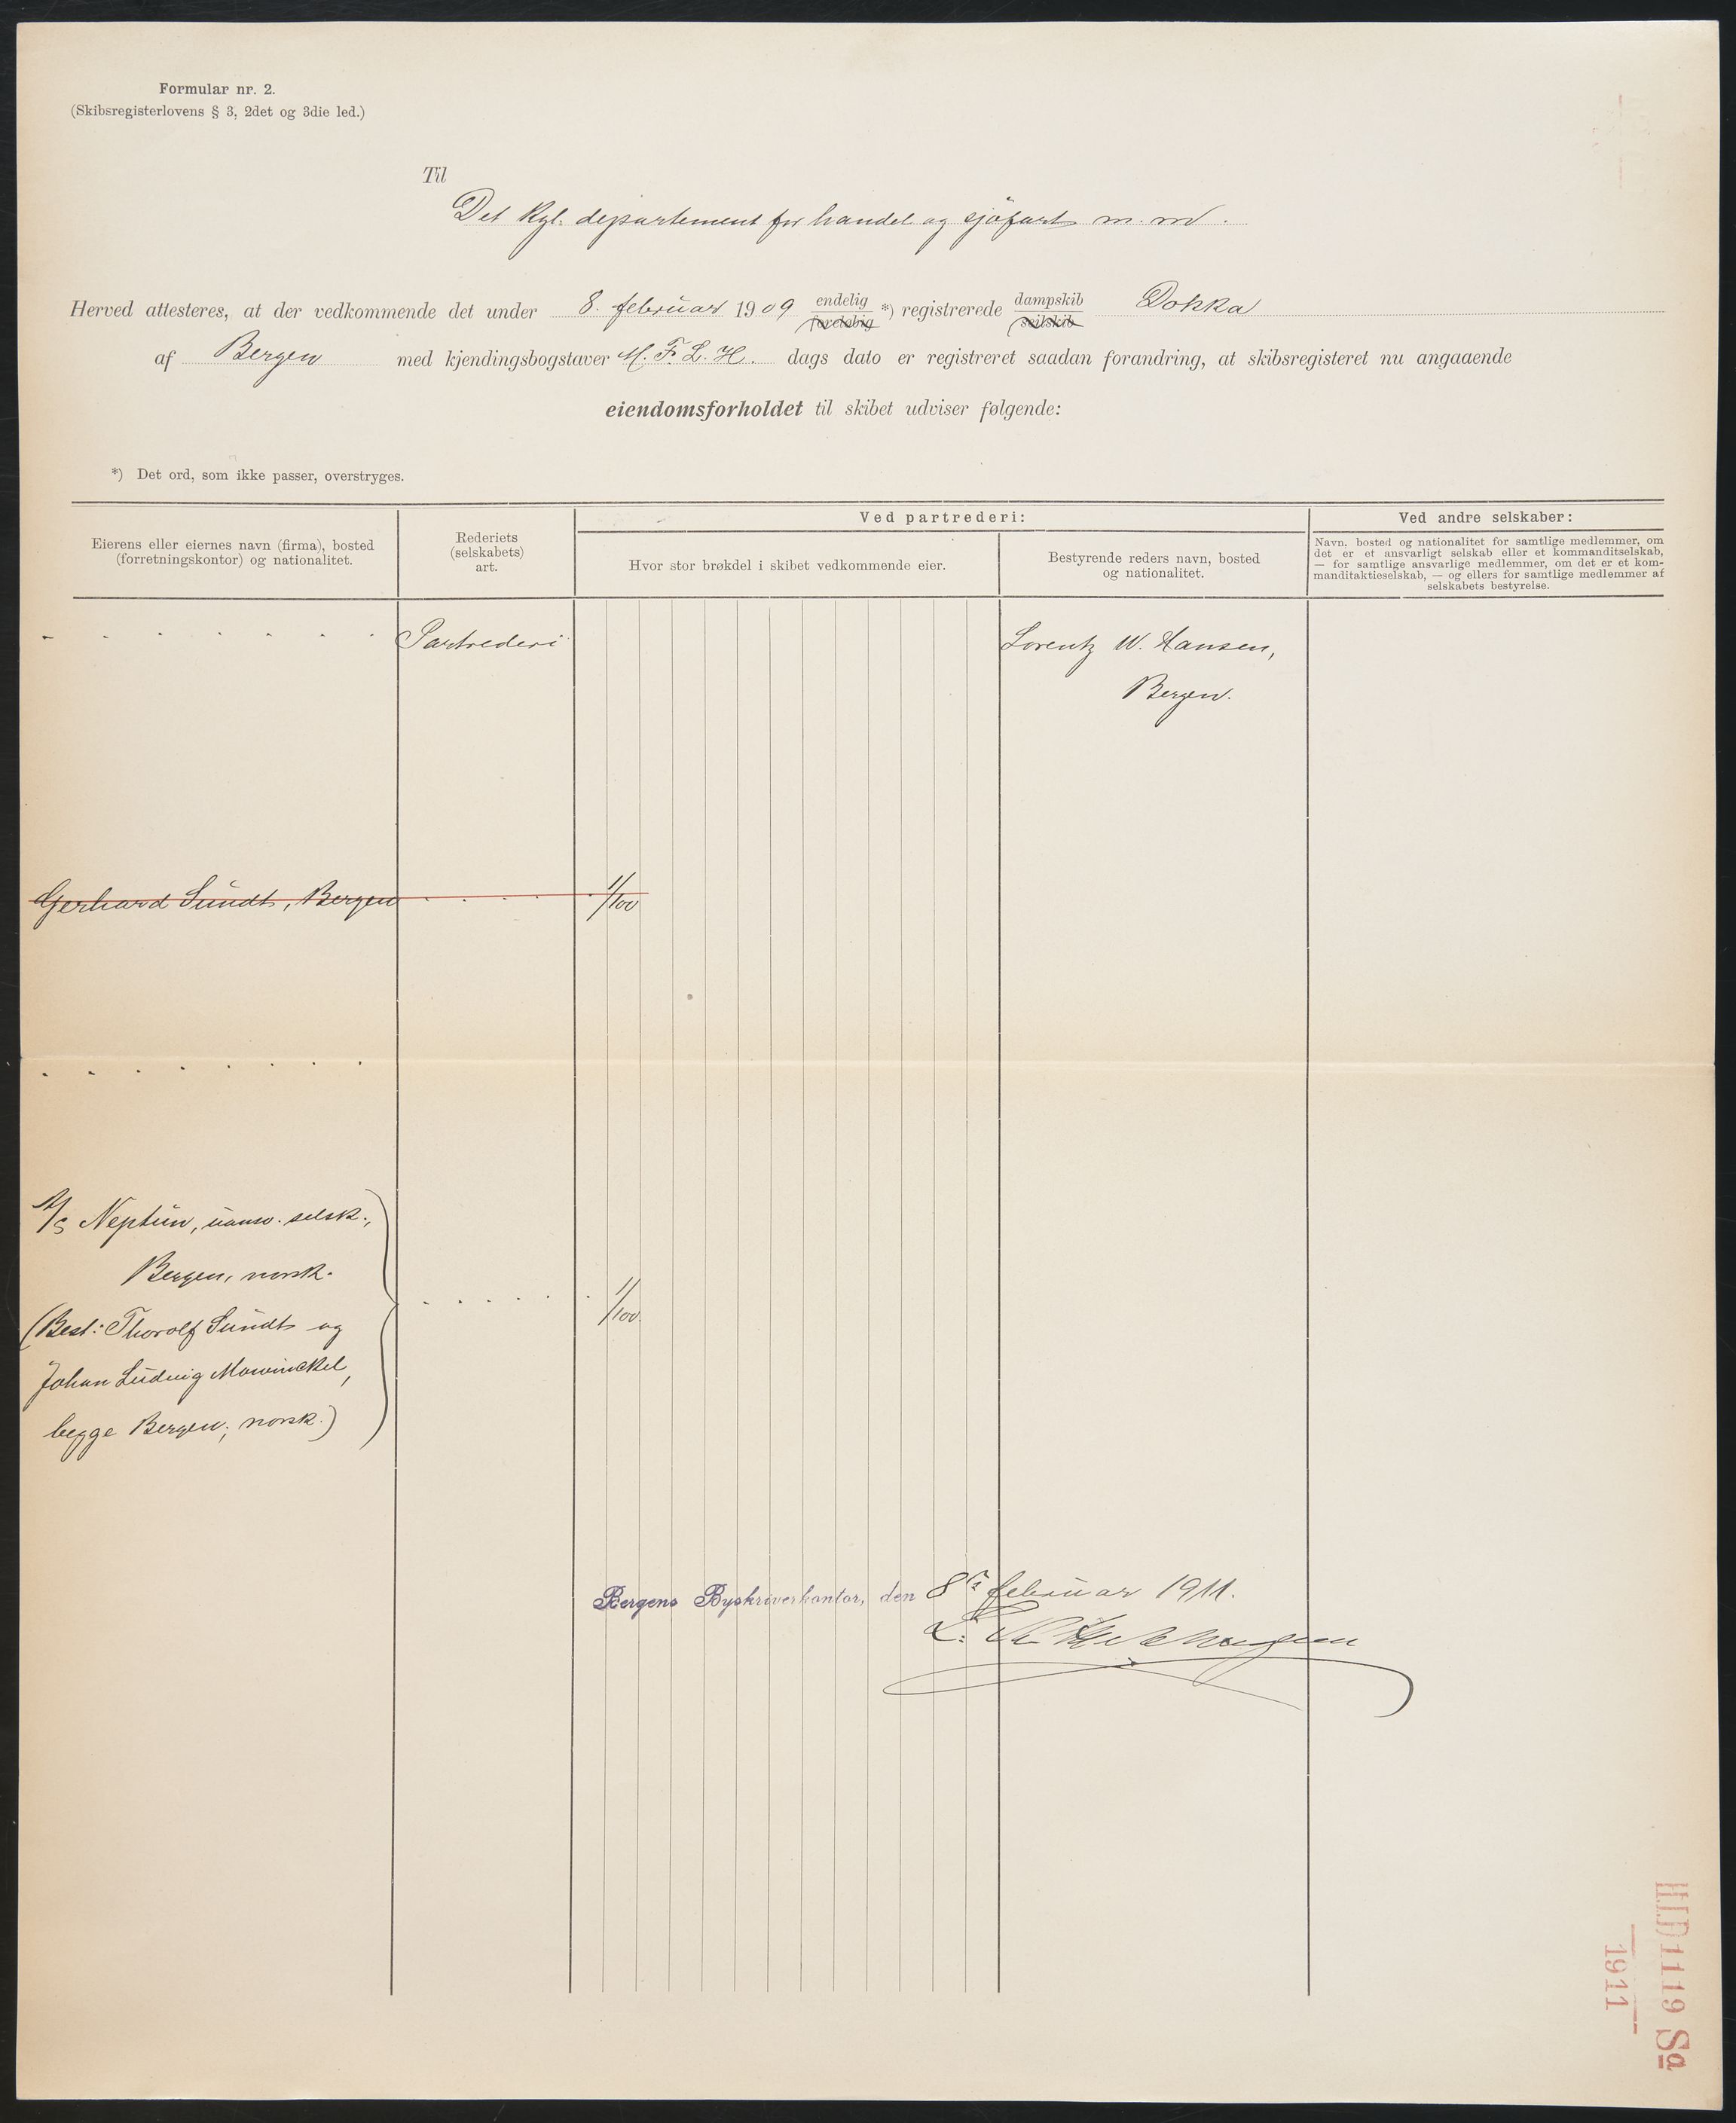 Formular nr. 2.
(Skibsregisterlovens § 3, 2det og 3die led.)
Til
Det Kgl. departement for handel og sjöfart m. m.
Herved attesteres, at der vedkommende det under 8. februar 1909 endelig *) registrerede dampskib Dokka
foreløbig seilskib
af Bergen med kjendingsbogstaver M. F. L. H. dags dato er registreret saadan forandring, at skibsregisteret nu angaaende
eiendomsforholdet til skibet udviser følgende:
*) Det ord, som ikke passer, overstryges.
Eierens eller eiernes navn (firma), bosted
(forretningskontor) og nationalitet.
Rederiets
(selskabets)
art.
Ved partrederi:
Hvor stor brøkdel i skibet vedkommende eier.
Bestyrende reders navn, bosted
og nationalitet.
Ved andre selskaber:
Navn, bosted og nationalitet for samtlige medlemmer, om
det er et ansvarligt selskab eller et kommanditselskab,
— for samtlige ansvarlige medlemmer, om det er et kom-
manditaktieselskab, — og ellers for samtlige medlemmer af
selskabets bestyrelse.
- - - - - - - Partrederi Lorentz W. Hansen,
Bergen.
Gerhard Sundt, Bergen . . . . 1/100
. . . . . . .
A/S Neptun, uansv. selsk.,
Bergen, norsk.
(Best: Thorolf Sundt og . . . . . 1/100.
Johan Ludvig Mowinckel,
begge Bergen; norsk.)
Bergens Byskriverkontor, den 8de februar 1911.
HID 1119 Sa
1911